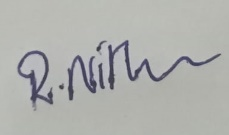 R. Nith